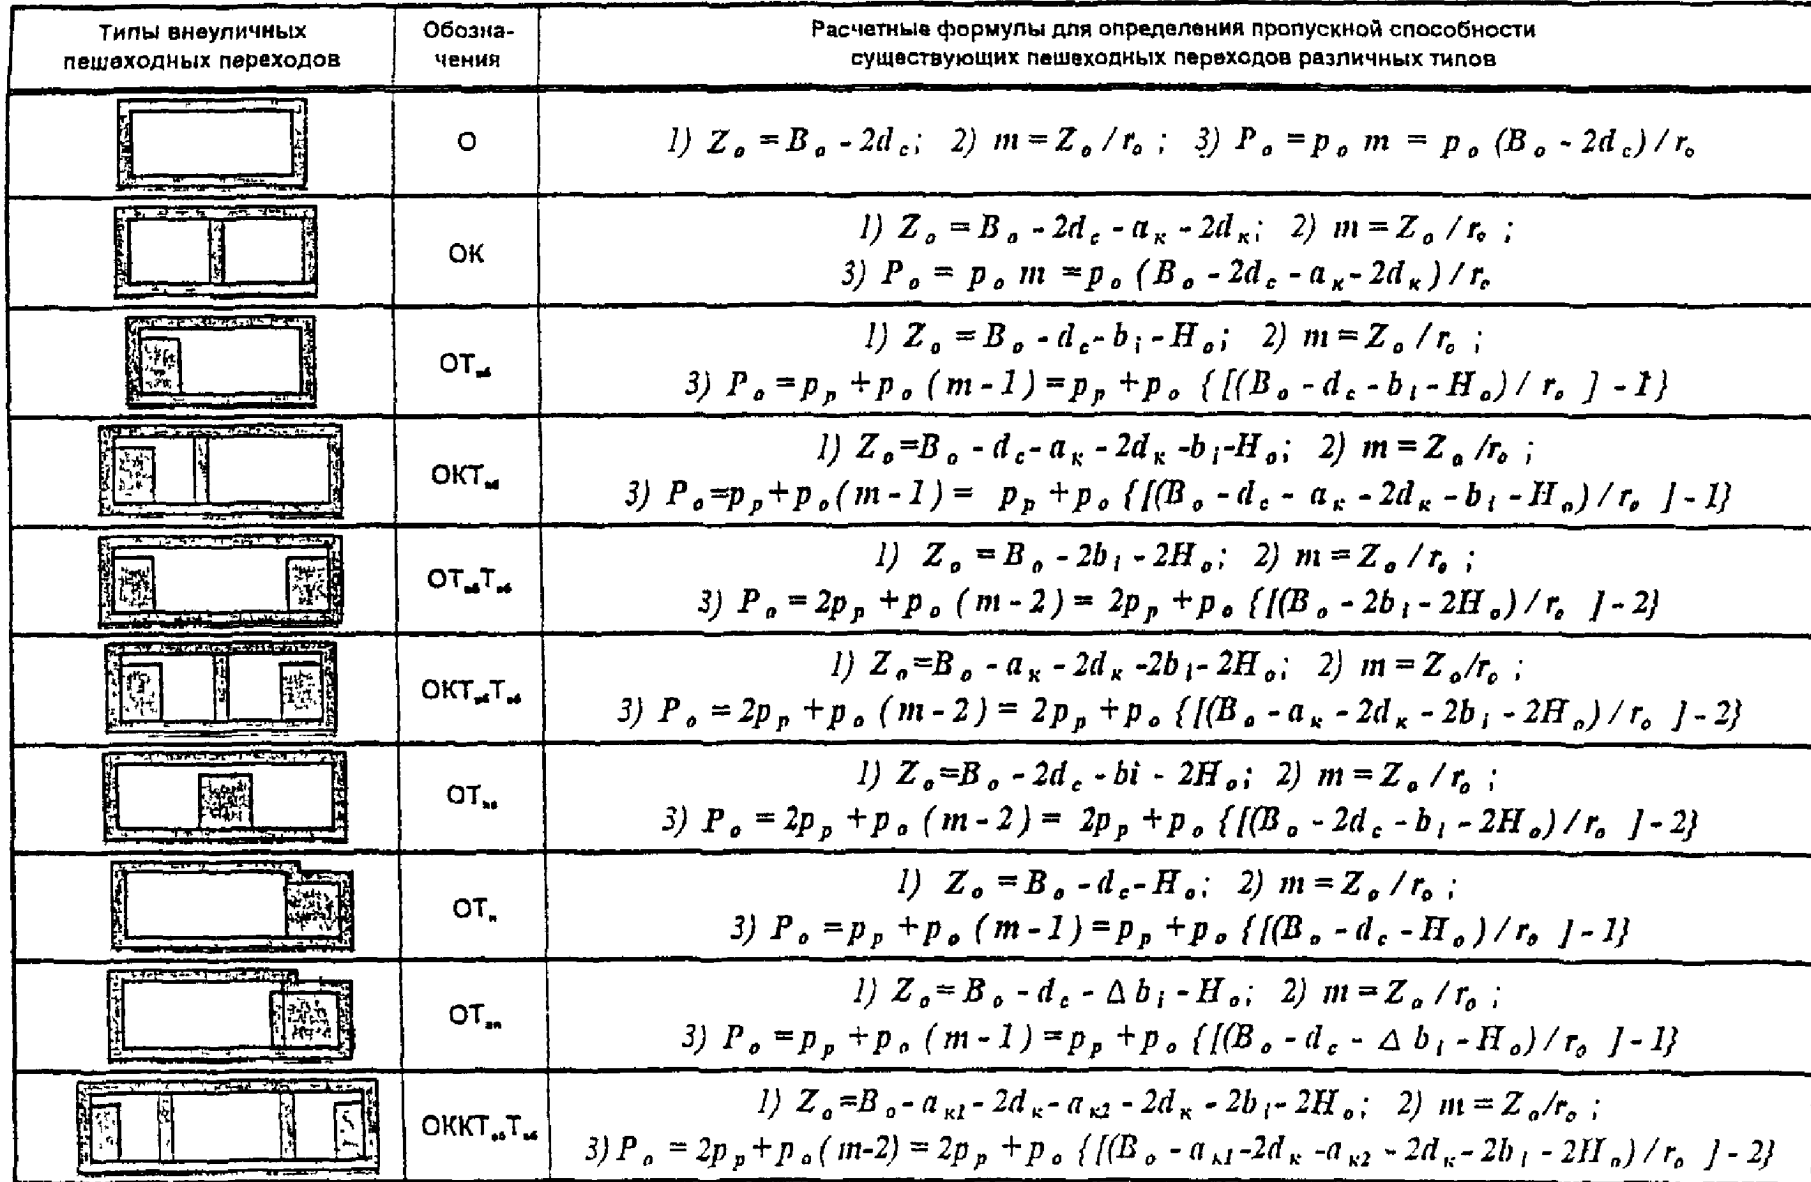 Типы внеуличных
пешеходных переходов
Обозна-
чения
Расчетные формулы для определения пропускной способности
существующих пешеходных переходов различных типов
О
1) Zₒ = Bₒ - 2d_c; 2) m = Zₒ / rₒ ; 3) Pₒ = pₒ m = pₒ (Bₒ - 2d_c) / rₒ
ОК
1) Zₒ = Bₒ - 2d_c - a_к - 2d_к; 2) m = Zₒ / rₒ ;
3) Pₒ = pₒ m = pₒ (Bₒ - 2d_c - a_к - 2d_к) / rₒ
ОТ
1) Zₒ = Bₒ - d_c - b_i - Hₒ; 2) m = Zₒ / rₒ ;
3) Pₒ = p_p + pₒ (m - 1) = p_p + pₒ {[(Bₒ - d_c - b_i - Hₒ) / rₒ ] - 1}
ОКТ
1) Zₒ=Bₒ - d_c - a_к - 2d_к - b_i - Hₒ; 2) m = Zₒ /rₒ ;
3) Pₒ=p_p + pₒ (m - 1) = p_p + pₒ {[(Bₒ - d_c - a_к - 2d_к - b_i - Hₒ) / rₒ ] - 1}
ОТ Т
1) Zₒ = Bₒ - 2b_i - 2Hₒ; 2) m = Zₒ / rₒ ;
3) Pₒ = 2p_p + pₒ (m - 2) = 2p_p + pₒ {[(Bₒ - 2b_i - 2Hₒ) / rₒ ] - 2}
ОКТ Т
1) Zₒ=Bₒ - a_к - 2d_к - 2b_i - 2Hₒ; 2) m = Zₒ/rₒ ;
3) Pₒ = 2p_p + pₒ (m - 2) = 2p_p + pₒ {[(Bₒ - a_к - 2d_к - 2b_i - 2Hₒ) / rₒ ] - 2}
ОТ
1) Zₒ=Bₒ - 2d_c - bi - 2Hₒ; 2) m = Zₒ / rₒ ;
3) Pₒ = 2p_p + pₒ (m - 2) = 2p_p + pₒ {[(Bₒ - 2d_c - b_i - 2Hₒ) / rₒ ] - 2}
ОТ
1) Zₒ = Bₒ - d_c - Hₒ; 2) m = Zₒ / rₒ ;
3) Pₒ = p_p + pₒ (m - 1) = p_p + pₒ {[(Bₒ - d_c - Hₒ) / rₒ ] - 1}
ОТ
1) Zₒ = Bₒ - d_c - Δ b_i - Hₒ; 2) m = Zₒ / rₒ ;
3) Pₒ = p_p + pₒ (m - 1) = p_p + pₒ {[(Bₒ - d_c - Δ b_i - Hₒ) / rₒ ] - 1}
ОККТ Т
1) Zₒ=Bₒ - a_к1 - 2d_к - a_к2 - 2d_к - 2b_i - 2Hₒ; 2) m = Zₒ/rₒ ;
3) Pₒ = 2p_p + pₒ (m-2) = 2p_p + pₒ {[(Bₒ - a_к1 - 2d_к - a_к2 - 2d_к - 2b_i - 2Hₒ) / rₒ ] - 2}